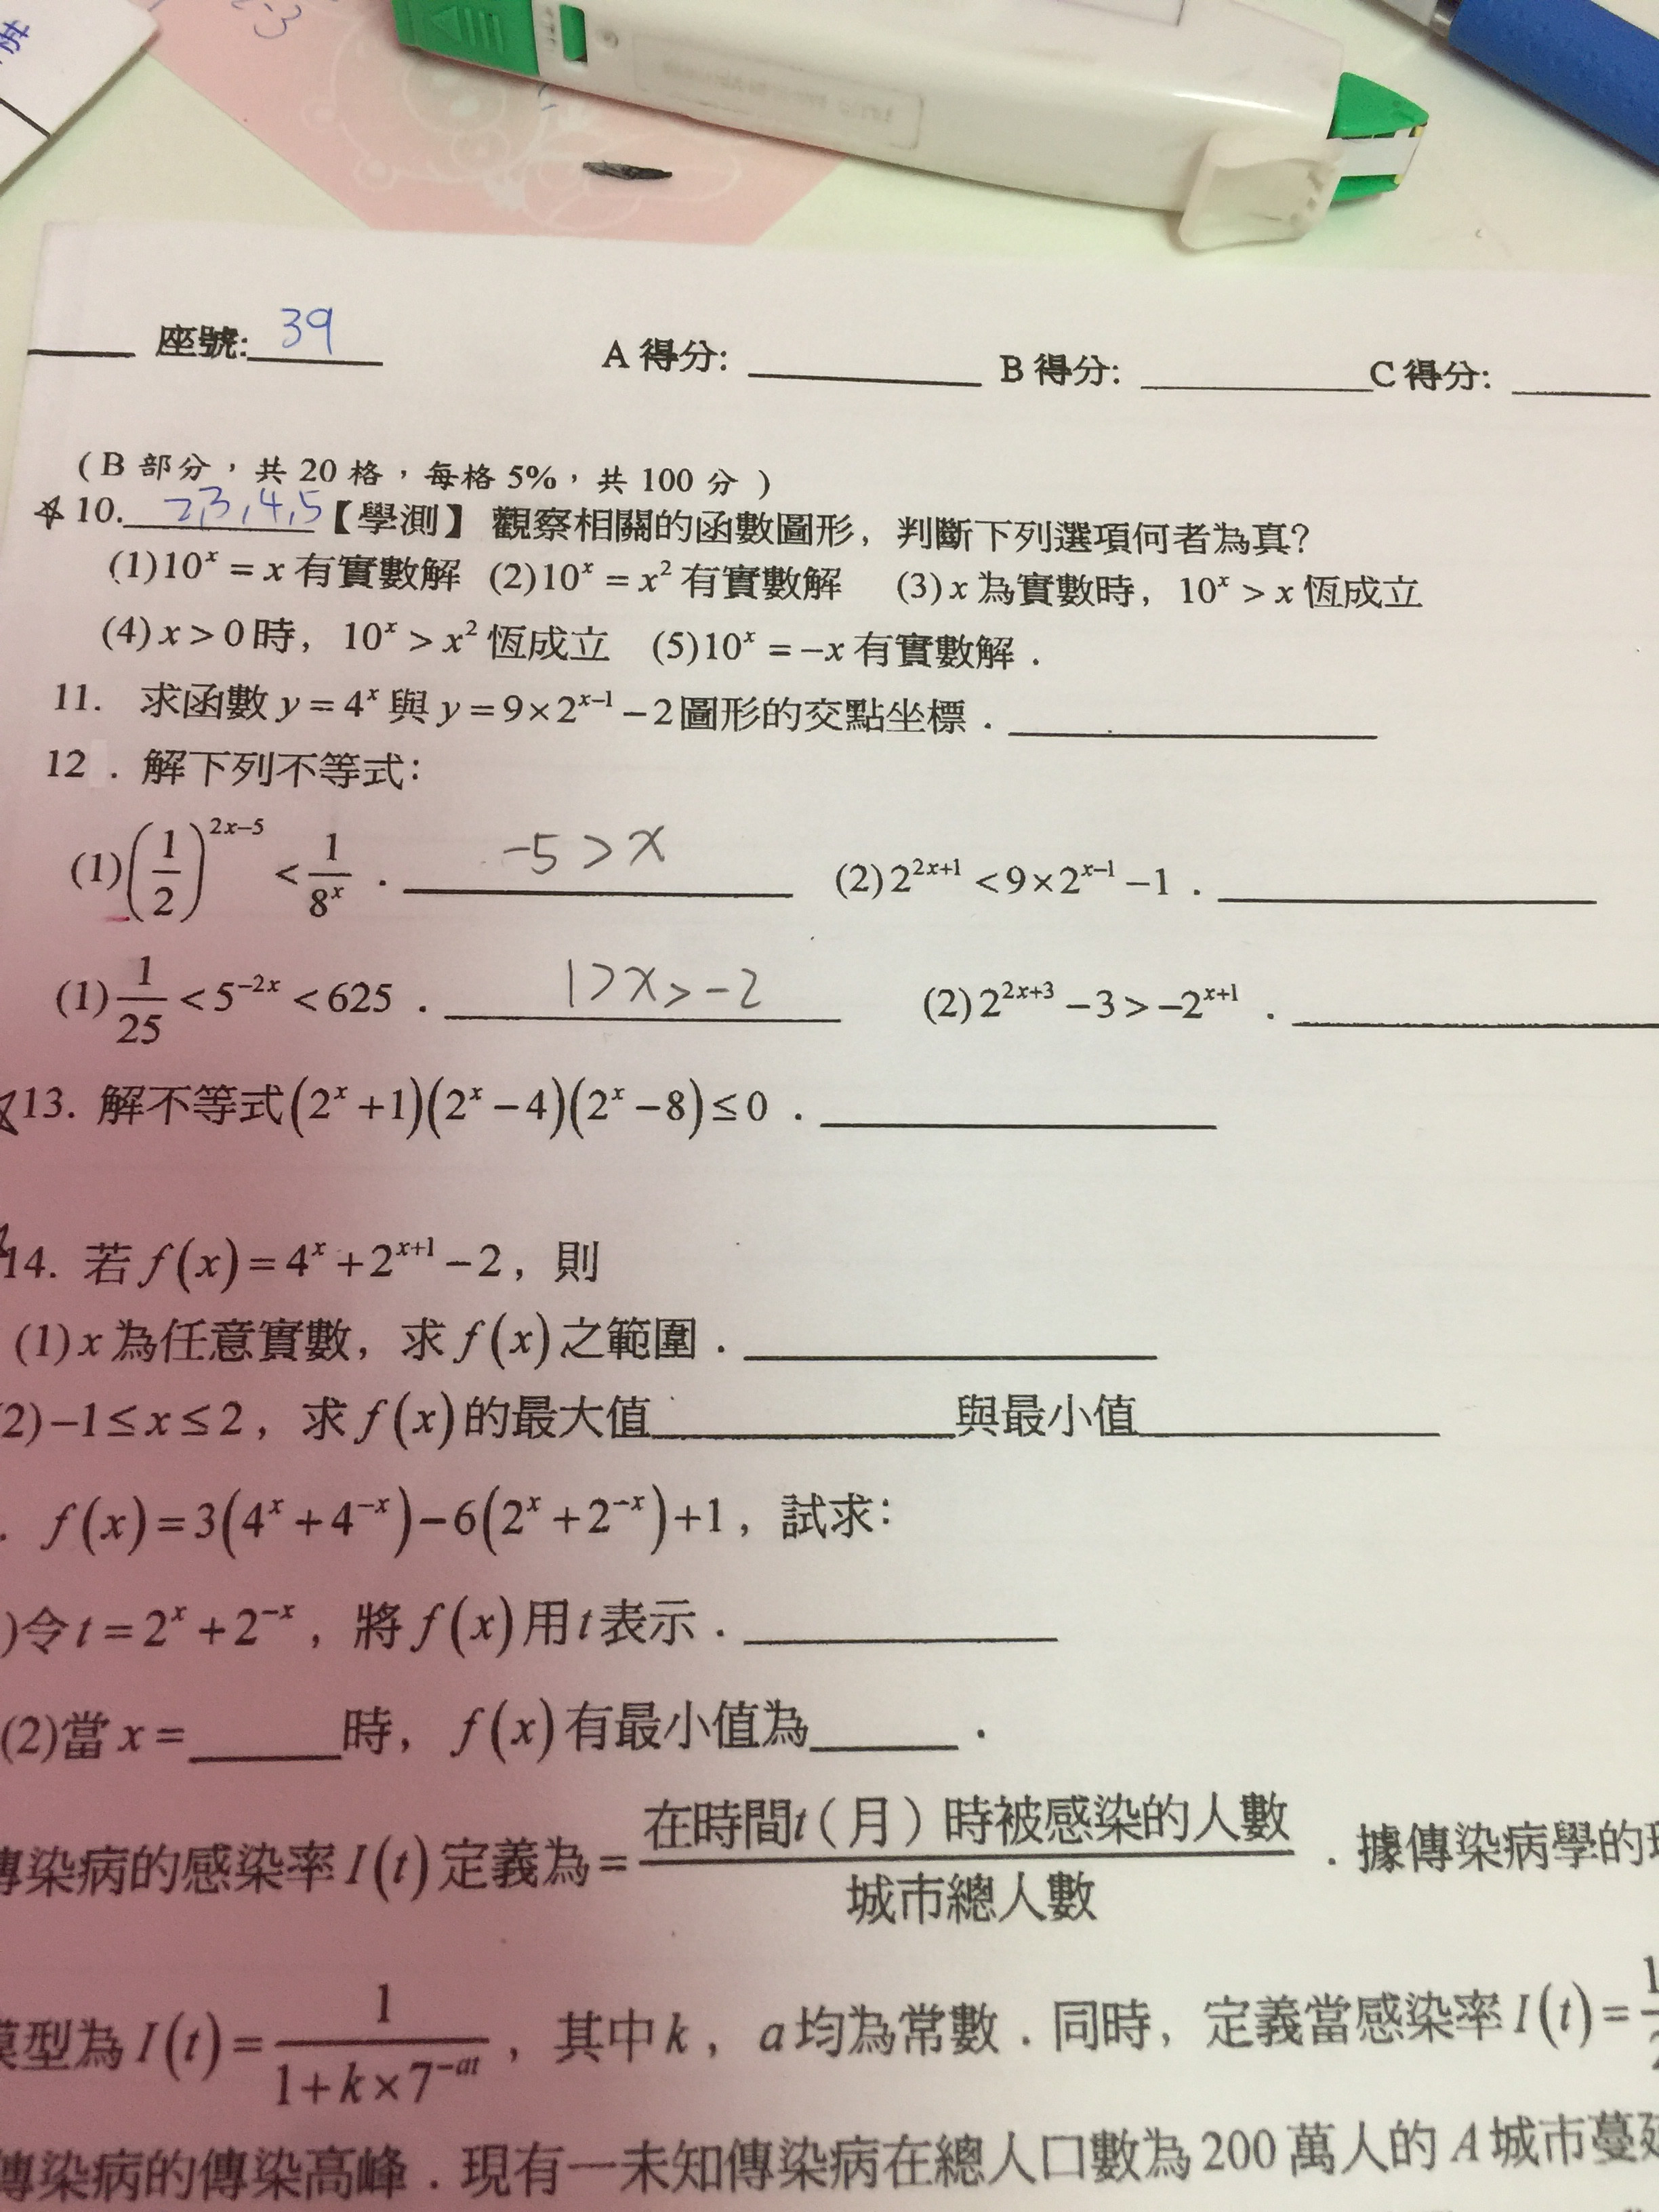 座號: 39 A 得分: B 得分: C 得分:
( B 部分，共 20 格，每格 5%，共 100 分 )
☆10. 2,3,4,5 【學測】 觀察相關的函數圖形，判斷下列選項何者為真?
(1)10^x = x 有實數解 (2)10^x = x^2 有實數解 (3) x 為實數時，10^x > x 恆成立
(4) x > 0 時，10^x > x^2 恆成立 (5)10^x = −x 有實數解．
11. 求函數 y = 4^x 與 y = 9×2^(x−1) − 2 圖形的交點坐標．
12．解下列不等式：
(1)(1/2)^(2x−5) < 1/8^x． -5 > x (2) 2^(2x+1) < 9×2^(x−1) −1．
(1) 1/25 < 5^(−2x) < 625． 1 > x > -2 (2) 2^(2x+3) − 3 > −2^(x+1)．
13. 解不等式 (2^x + 1)(2^x − 4)(2^x − 8) ≤ 0．
14. 若 f(x) = 4^x + 2^(x+1) − 2，則
(1) x 為任意實數，求 f(x) 之範圍．
2) −1 ≤ x ≤ 2，求 f(x) 的最大值 與最小值
. f(x) = 3(4^x + 4^(−x)) − 6(2^x + 2^(−x)) + 1，試求：
)令 t = 2^x + 2^(−x)，將 f(x) 用 t 表示．
(2)當 x = 時，f(x) 有最小值為 ．
傳染病的感染率 I(t) 定義為 = 在時間t（月）時被感染的人數 / 城市總人數 ．據傳染病學的
模型為 I(t) = 1/(1 + k×7^(−at))，其中 k，a 均為常數．同時，定義當感染率 I(t) =
傳染病的傳染高峰．現有一未知傳染病在總人口數為 200 萬人的 A 城市蔓延